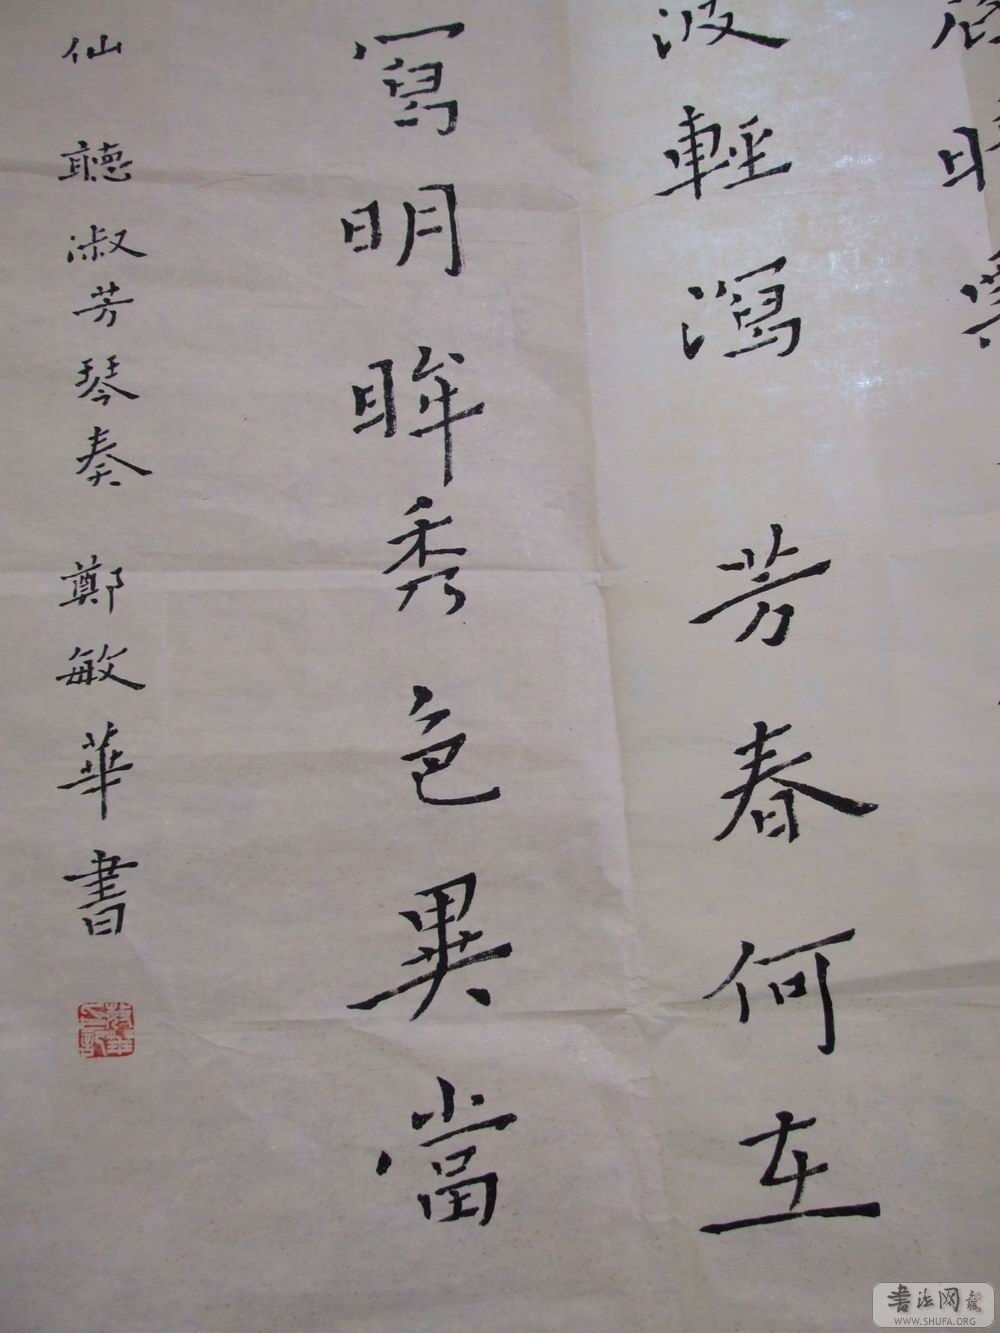 眸
波輕瀉芳春何在
寫明眸秀色異當
仙聽淑芳琴奏鄭敏華書
書法网
WWW.SHUFA.ORG